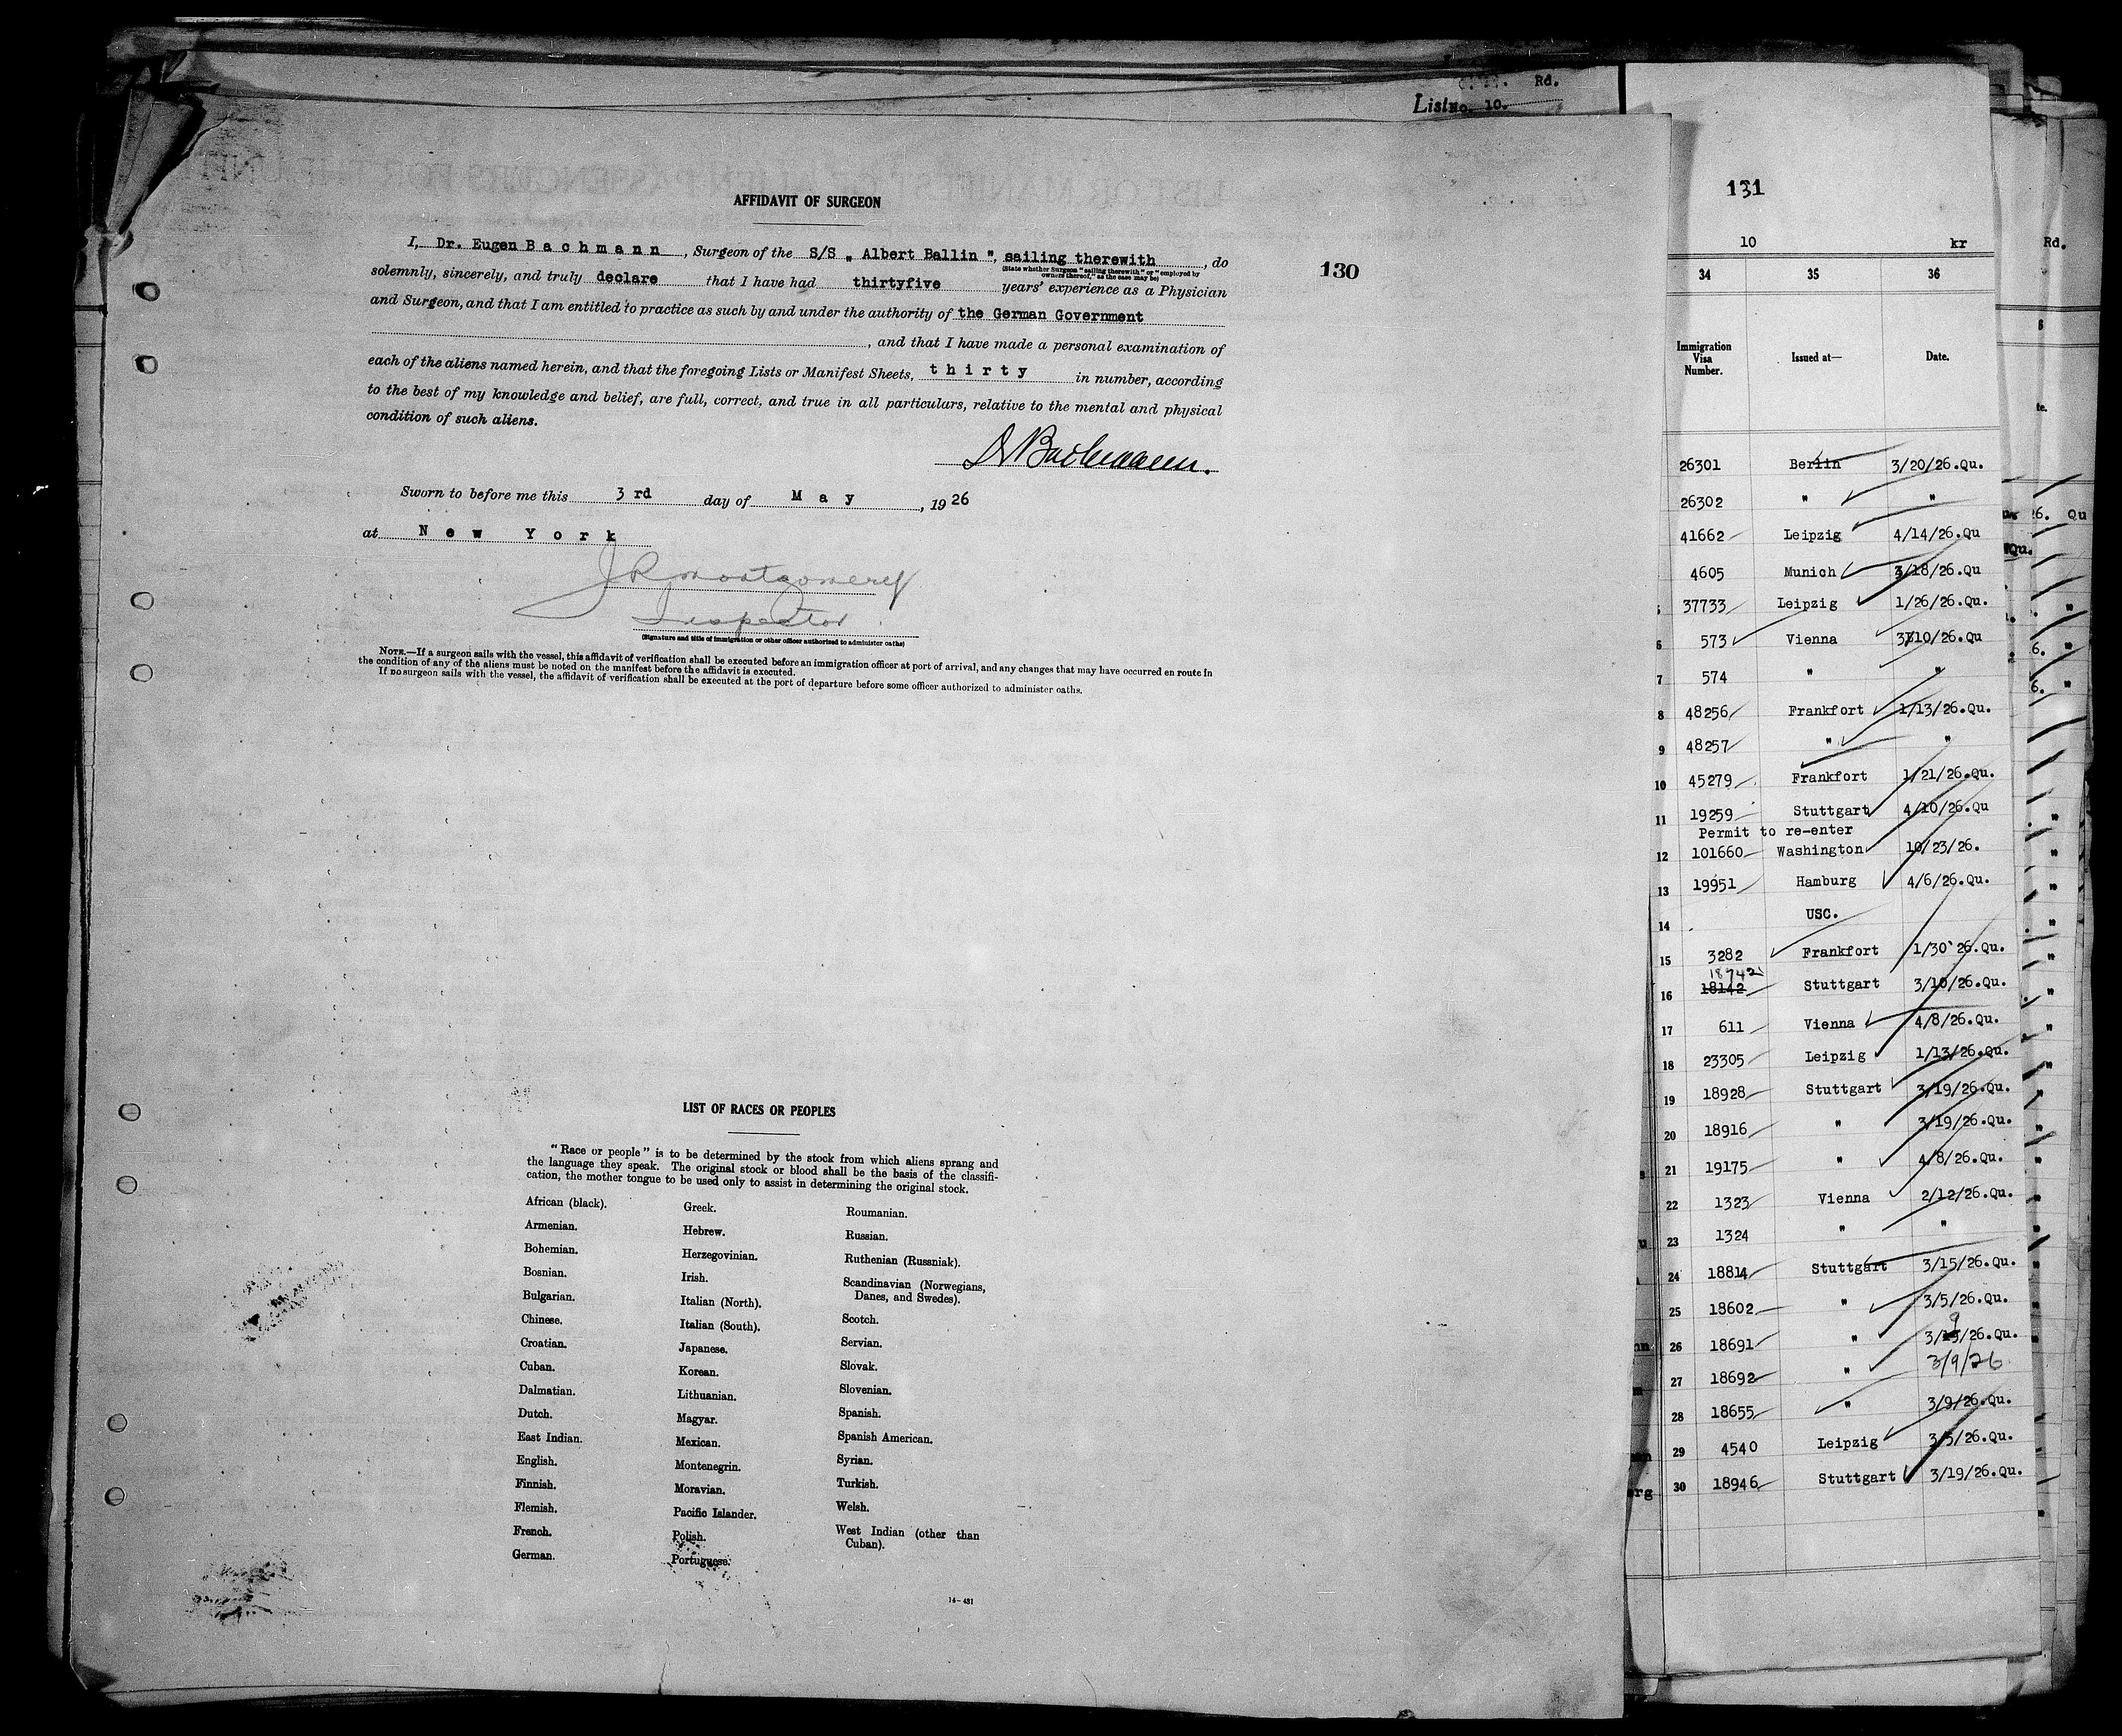 Rd.
List No. 10.
AFFIDAVIT OF SURGEON
130
I, Dr. Eugen B a c h m a n n , Surgeon of the S/S „ Albert Ballin ", sailing therewith , do
(State whether Surgeon "sailing therewith" or "employed by
owners thereof," as the case may be)
solemnly, sincerely, and truly declare that I have had thirtyfive years' experience as a Physician
and Surgeon, and that I am entitled to practice as such by and under the authority of the German Government
, and that I have made a personal examination of
each of the aliens named herein, and that the foregoing Lists or Manifest Sheets, t h i r t y in number, according
to the best of my knowledge and belief, are full, correct, and true in all particulars, relative to the mental and physical
condition of such aliens.
Dr Bachmann.
Sworn to before me this 3 rd day of M a y , 19 26
at N e w Y o r k
J R Montgomery
Inspector
(Signature and title of immigration or other officer authorized to administer oaths)
NOTE.—If a surgeon sails with the vessel, this affidavit of verification shall be executed before an immigration officer at port of arrival, and any changes that may have occurred en route in
the condition of any of the aliens must be noted on the manifest before the affidavit is executed.
If no surgeon sails with the vessel, the affidavit of verification shall be executed at the port of departure before some officer authorized to administer oaths.
LIST OF RACES OR PEOPLES
"Race or people" is to be determined by the stock from which aliens sprang and
the language they speak. The original stock or blood shall be the basis of the classifi-
cation, the mother tongue to be used only to assist in determining the original stock.
African (black).
Armenian.
Bohemian.
Bosnian.
Bulgarian.
Chinese.
Croatian.
Cuban.
Dalmatian.
Dutch.
East Indian.
English.
Finnish.
Flemish.
French.
German.
Greek.
Hebrew.
Herzegovinian.
Irish.
Italian (North).
Italian (South).
Japanese.
Korean.
Lithuanian.
Magyar.
Mexican.
Montenegrin.
Moravian.
Pacific Islander.
Polish.
Portuguese.
Roumanian.
Russian.
Ruthenian (Russniak).
Scandinavian (Norwegians,
Danes, and Swedes).
Scotch.
Servian.
Slovak.
Slovenian.
Spanish.
Spanish American.
Syrian.
Turkish.
Welsh.
West Indian (other than
Cuban).
14—431
131
10 kr
34 35 36
Immigration Visa Number. Issued at— Date.
26301 Berlin 3/20/26.Qu.
26302 " "
41662 Leipzig 4/14/26.Qu
4605 Munich 3/18/26.Qu
37733 Leipzig 1/26/26.Qu.
6 573 Vienna 3/10/26.Qu
7 574 " "
8 48256 Frankfort 1/13/26.Qu.
9 48257 " "
10 45279 Frankfort 1/21/26.Qu.
11 19259 Stuttgart 4/10/26.Qu
Permit to re-enter
12 101660 Washington 10/23/26.
13 19951 Hamburg 4/6/26.Qu.
14 USC.
15 3282 Frankfort 1/30 26.Qu.
18942
16 18142 Stuttgart 3/10/26.Qu.
17 611 Vienna 4/8/26.Qu.
18 23305 Leipzig 1/13/26.Qu.
19 18928 Stuttgart 3/19/26.Qu.
20 18916 " 3/19/26.Qu.
21 19175 " 4/8/26.Qu.
22 1323 Vienna 2/12/26.Qu.
23 1324 " "
24 18814 Stuttgart 3/15/26.Qu.
25 18602 " 3/5/26.Qu.
9
26 18691 " 3/15/26.Qu.
27 18692 " 3/9/26
28 18655 " 3/9/26.Qu.
29 4540 Leipzig 3/5/26.Qu.
30 18946 Stuttgart 3/19/26.Qu.
Rd.
6
te.
26. Qu
Qu.
6. "
6. "